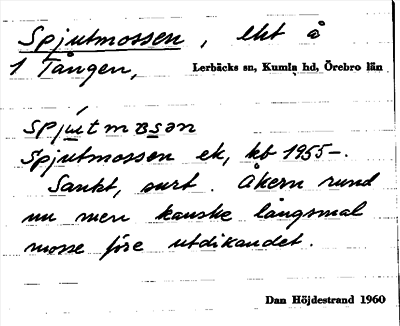 Spjutmossen, ekt å
1 Tången, Lerbäcks sn, Kumla hd, Örebro län
spjutmɷsən
Spjutmossen ek, kb 1955–.
Sankt, surt. Åkern rund
nu men kanske långsmal
mosse före utdikandet.
Dan Höjdestrand 1960